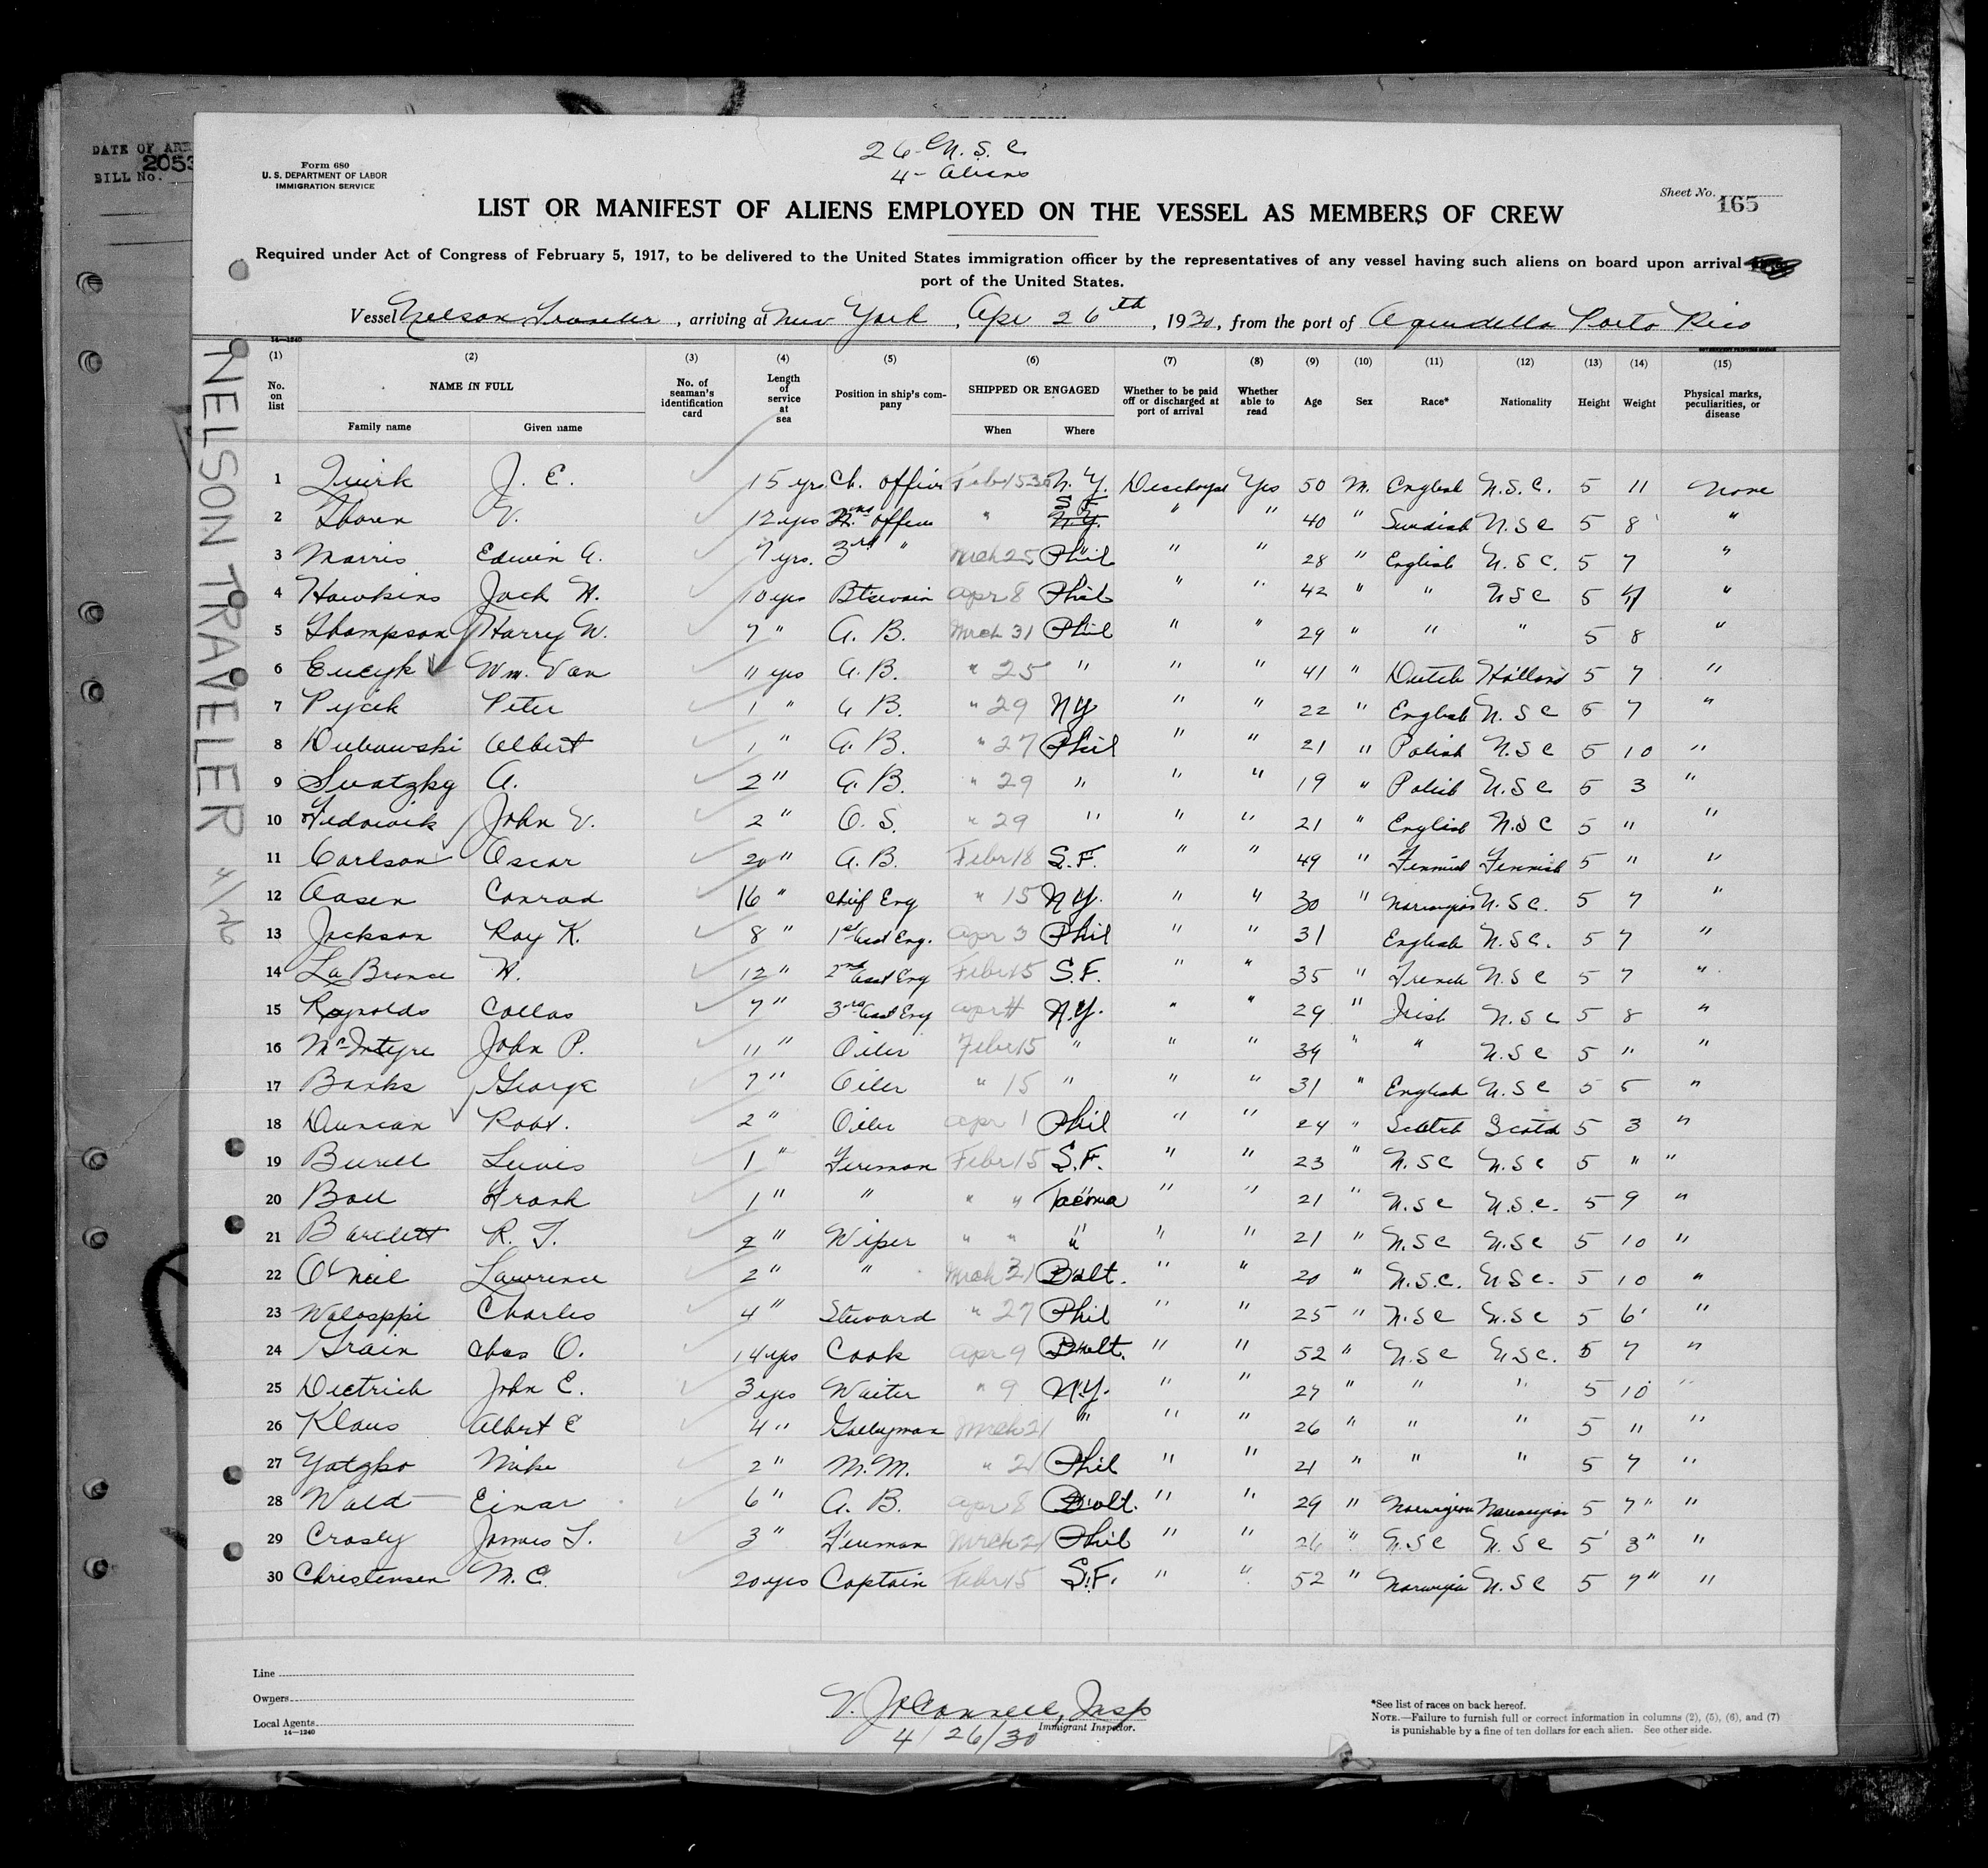 DATE OF ARR
BILL No. 2053
Form 680
U. S. DEPARTMENT OF LABOR
IMMIGRATION SERVICE
26 - U. S. C.
4 - Aliens
Sheet No. 165
LIST OR MANIFEST OF ALIENS EMPLOYED ON THE VESSEL AS MEMBERS OF CREW
Required under Act of Congress of February 5, 1917, to be delivered to the United States immigration officer by the representatives of any vessel having such aliens on board upon arrival
port of the United States.
Vessel Nelson Traveler, arriving at New York, Apr 26th, 1930, from the port of Aguadella Porto Rico
NELSON TRAVELER 4/26
14—1240
(1) (2) (3) (4) (5) (6) (7) (8) (9) (10) (11) (12) (13) (14) (15)
No. on list NAME IN FULL No. of seaman's identification card Length of service at sea Position in ship's company SHIPPED OR ENGAGED Whether to be paid off or discharged at port of arrival Whether able to read Age Sex Race* Nationality Height Weight Physical marks, peculiarities, or disease
Family name Given name When Where
1 Quirk J. E. 15 yrs Ch. officer Feb 15 30 N. Y. Discharge Yes 50 M. English U.S.C. 5 11 None
2 Thoren V. 12 yrs 2nd officer " S F N.Y. " " 40 " Swedish U.S C 5 8 "
3 Morris Edwin A. 7 yrs. 3rd " Mrch 25 Phil " " 28 " English U.S.C. 5 7 "
4 Hawkins Jack H. 10 yrs Btswain Apr 8 Phil " " 42 " " U S C 5 "
5 Thompson Harry W. 7 " A. B. Mrch 31 Phil " " 29 " " " 5 8 "
6 Eucyk Wm. Van 11 yrs A. B. " 25 " " " 41 " Dutch Holland 5 7 "
7 Pycik Peter 1 " A B. " 29 N Y " " 22 " English U. S C 5 7 "
8 Dubowski Albert 1 " A. B. " 27 Phil " " 21 " Polish U.S C 5 10 "
9 Svatzky A. 2 " A. B. " 29 " " " 19 " Polish U.S C 5 3 "
10 John V. 2 " O. S. " 29 " " " 21 " English U.S C 5 " "
11 Carlson Oscar 20 " A. B. Febr 18 S.F. " " 49 " Finnish Finnish 5 " "
12 Aasen Conrad 16 " Chief Eng " 15 N Y. " " 30 " Norwegian U. S C. 5 7 "
13 Jackson Roy K. 8 " 1st Asst Eng. Apr 3 Phil " " 31 English U.S.C. 5 7 "
14 La Brance H. 12 " 2nd Asst Eng Febr 15 S.F. " " 35 " French U.S C 5 7 "
15 Reynolds Collas 7 " 3rd Asst Eng Apr 4 N.Y. " " 29 " Irish U.S C 5 8 "
16 McIntyre John P. 11 " Oiler Febr 15 " " " 39 " " U.S C 5 " "
17 Banks George 7 " Oiler " 15 " " " 31 " English U.S C 5 5 "
18 Duncan Robt. 2 " Oiler Apr 1 Phil " " 24 " Scotch Scotd 5 3 "
19 Burell Luvis 1 " Fireman Febr 15 S.F. " " 23 " U. S C U.S C 5 " "
20 Boll Frank 1 " " " " Tacoma " " 21 " U.S C U.S.C. 5 9 "
21 Barclett R. T. 2 " Wiper " " " " " 21 " U.S C U.S C 5 10 "
22 O'Neil Lawrence 2 " " Mrch 21 Balt. " " 20 " U.S.C. U.S C. 5 10 "
23 Walosppi Charles 4 " Steward " 27 Phil " " 25 " U.S C U.S C 5 6' "
24 Grain Chas O. 14 yrs Cook Apr 9 Balt. " " 52 " U.S C U.S C. 5 7 "
25 Dietrich John E. 3 yrs Waiter " 9 N.Y. " " 27 " " " 5 10 "
26 Klaus Albert E 4 " Galleyman Mrch 21 " " " 26 " " " 5 " "
27 Yatzko Mike 2 " M.M. " 21 Phil " " 21 " " " 5 7 "
28 Wald Einar 6 " A. B. Apr 8 Balt. " " 29 " Norwegian Norwegian 5 7" "
29 Crosly James T. 3 " Fireman Mrch 21 Phil " " 26 " U.S C U.S C 5' 3" "
30 Christensen M. C. 20 yrs Captain Febr 15 S.F. " " 52 " Norwegia U.S C 5 7" "
Line
Owners
Local Agents
14—1240
V. J. O'Connell, Insp
Immigrant Inspector.
4/26/30
*See list of races on back hereof.
NOTE.—Failure to furnish full or correct information in columns (2), (5), (6), and (7)
is punishable by a fine of ten dollars for each alien. See other side.